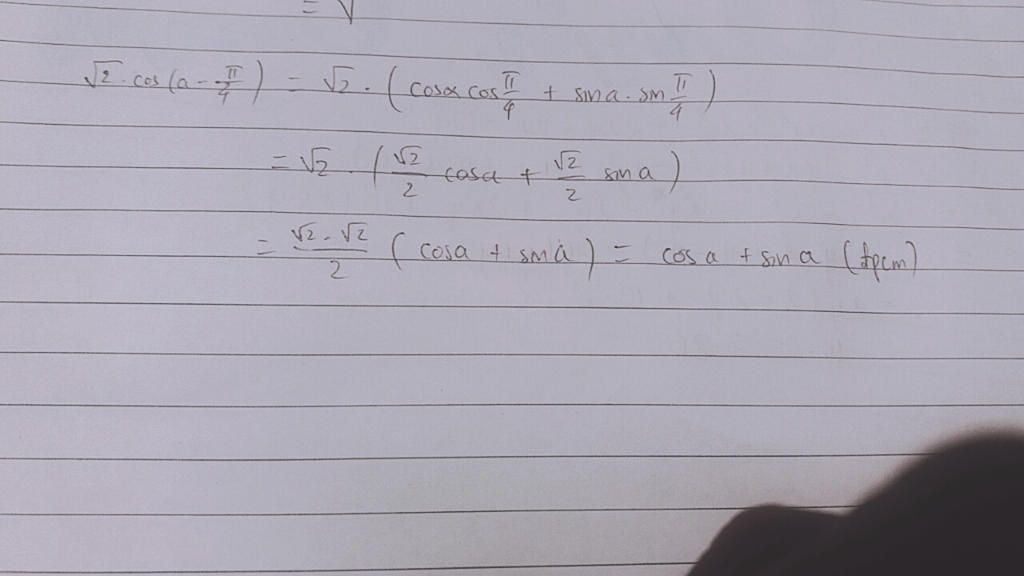 = √
√2 . cos(a - π/4) = √2 . (cosa cos π/4 + sina . sin π/4)
= √2 . (√2/2 cosa + √2/2 sin a)
= √2 . √2/2 (cosa + sin a) = cos a + sin a (đpcm)